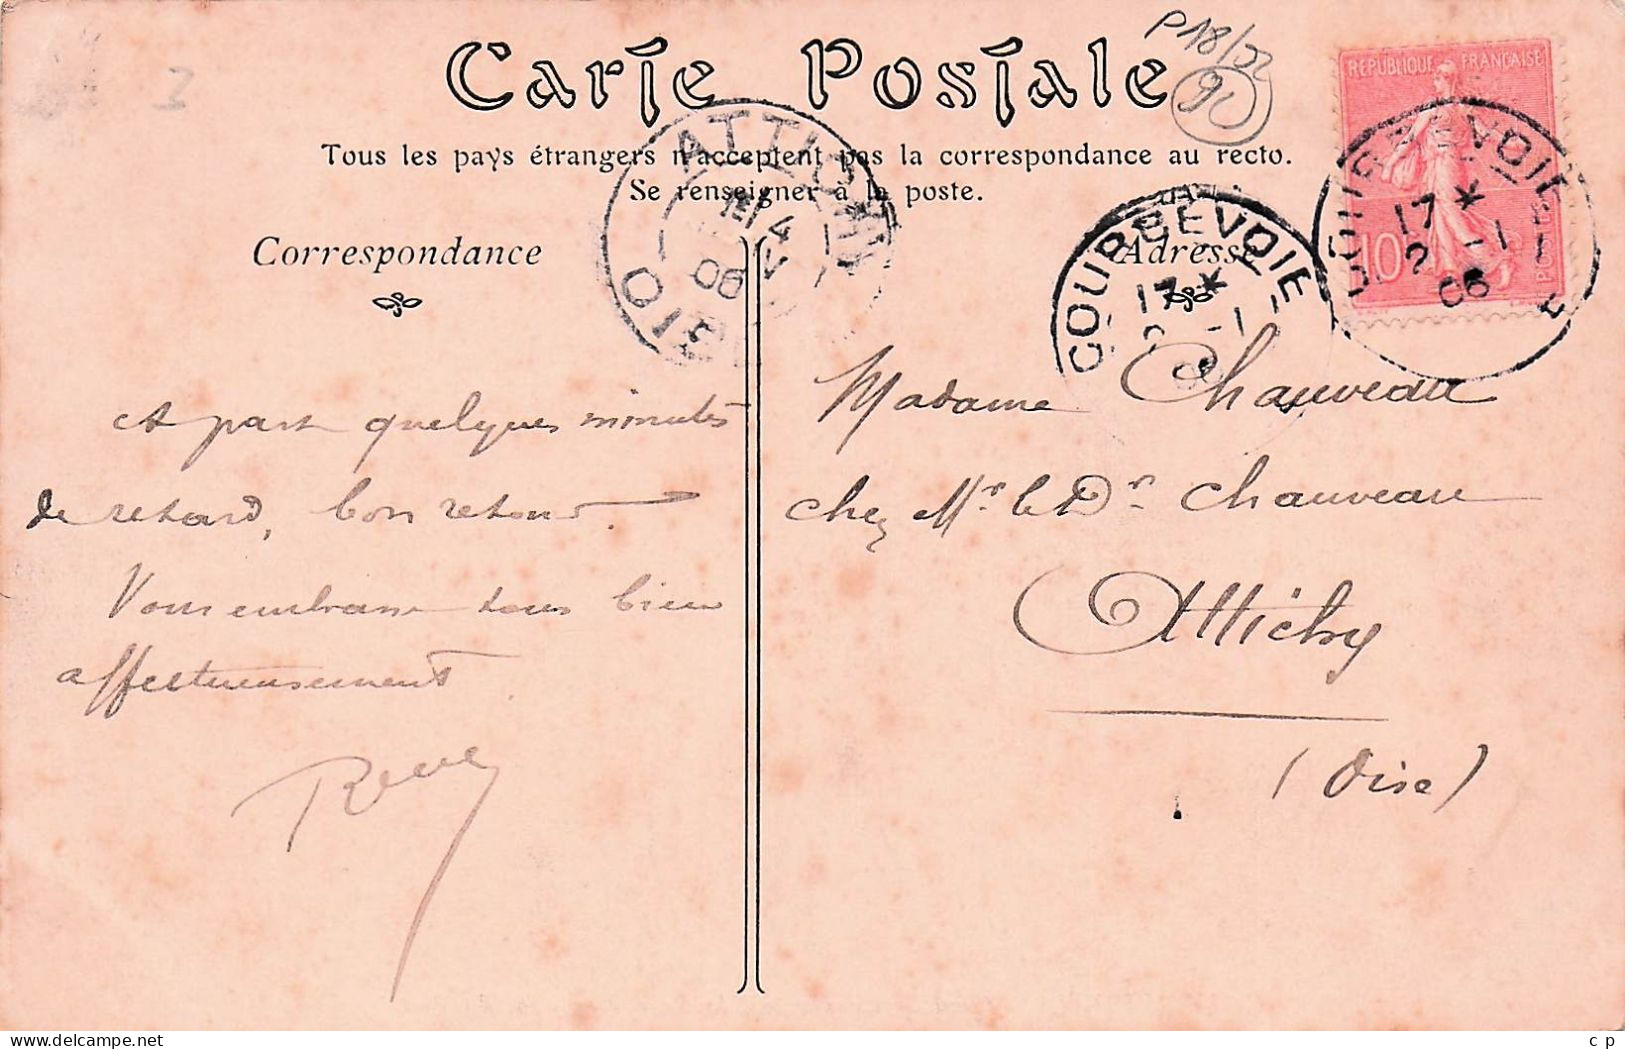 Carte Postale
P18/22
90
Tous les pays étrangers n'acceptent pas la correspondance au recto.
Se renseigner à la poste.
Correspondance
Adresse
REPUBLIQUE FRANÇAISE
10
POSTES
COURBEVOIE
17 *
2 -1
06
COURBEVOIE
17 *
2 -1
ATTICHY
4
06
OISE
A part quelques minutes
de retard, bon retour.
Vous embrasse tous bien
affectueusement
René
Madame Chauveau
chez Mr le Dr Chauveau
Attichy
(Oise)
delcampe.net
c p